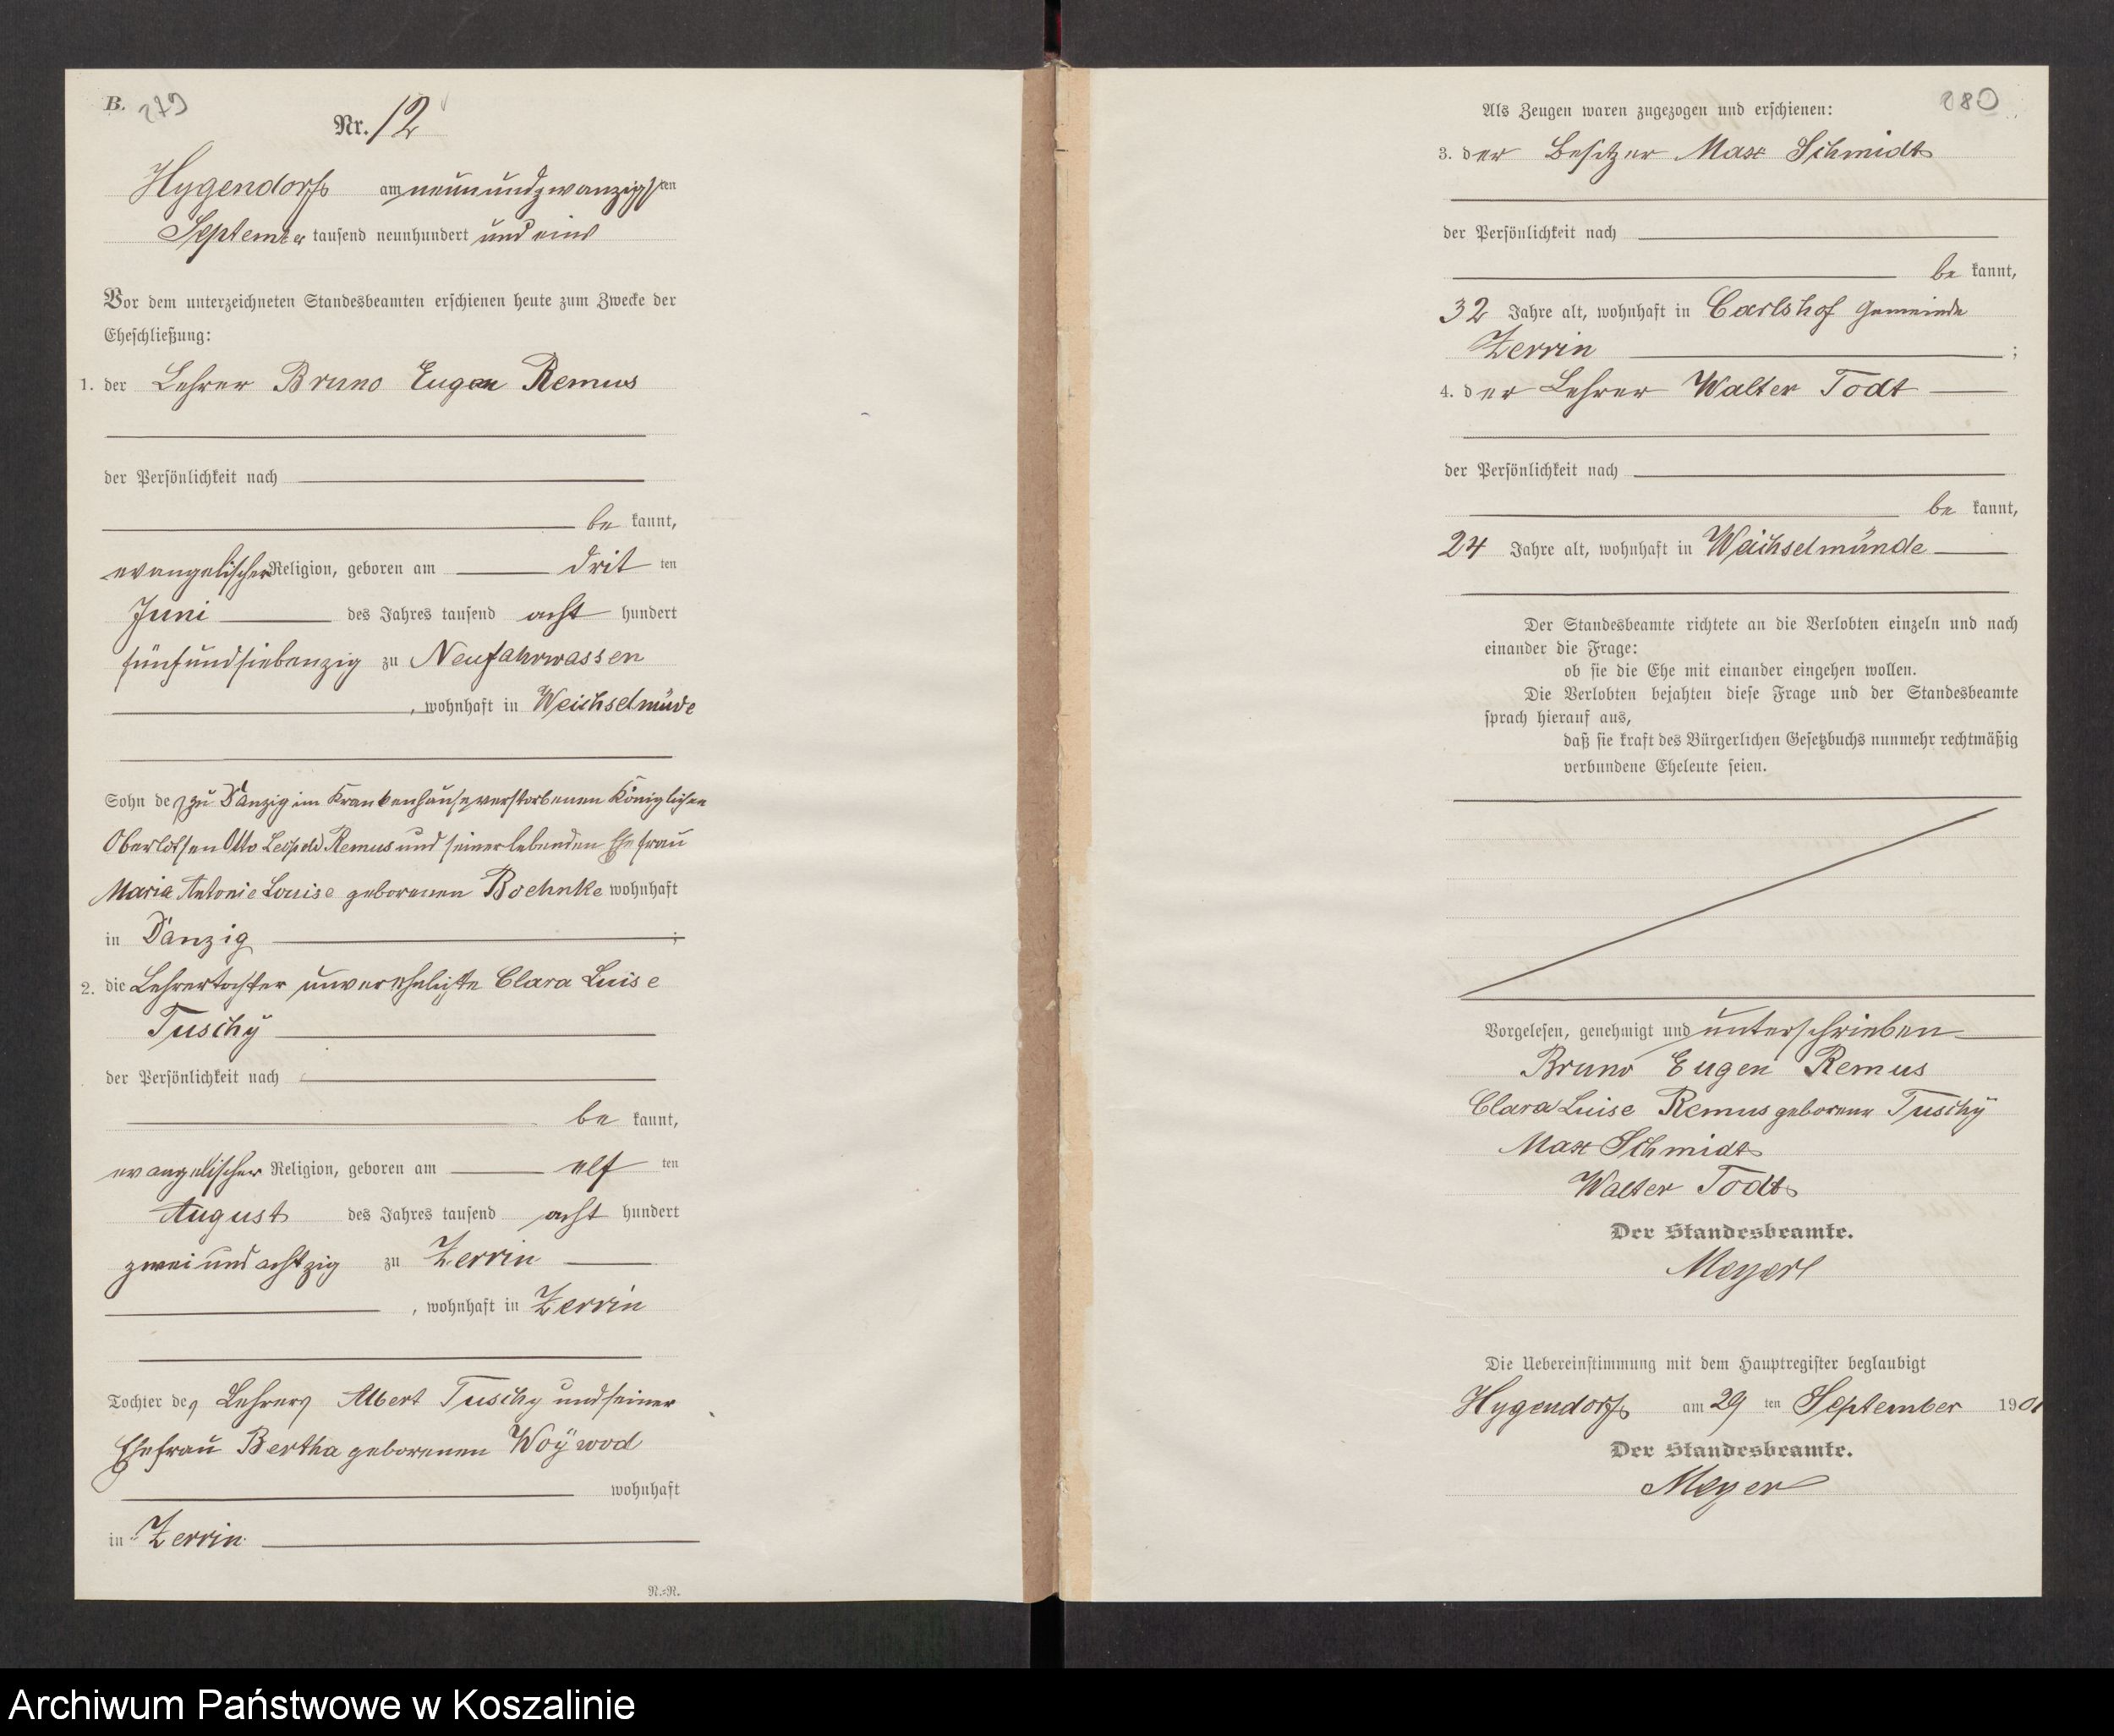 B. 279
Nr. 12
Hygendorf am neunundzwanzigsten
September tausend neunhundert und eins
Vor dem unterzeichneten Standesbeamten erschienen heute zum Zwecke der
Eheschließung:
1. der Lehrer Bruno Eugen Remus
der Persönlichkeit nach
be kannt,
evangelischer Religion, geboren am drit ten
Juni des Jahres tausend acht hundert
fünfundsiebenzig zu Neufahrwasser
, wohnhaft in Weichselmüde
Sohn des zu Danzig im Krankenhause verstorbenen Königlichen
Oberlotsen Otto Leopold Remus und seiner lebenden Ehefrau
Maria Antonie Louise geborenen Boehnke wohnhaft
in Danzig ;
2. die Lehrertochter unverehelichte Clara Luise
Tuschÿ
der Persönlichkeit nach
be kannt,
evangelischer Religion, geboren am elf ten
August des Jahres tausend acht hundert
zwei und achtzig zu Zerrin
, wohnhaft in Zerrin
Tochter des Lehrers Albert Tuschy und seiner
Ehefrau Bertha geborenen Woÿwod
wohnhaft
in Zerrin
N.=N.
280
Als Zeugen waren zugezogen und erschienen:
3. der Besitzer Max Schmidt
der Persönlichkeit nach
be kannt,
32 Jahre alt, wohnhaft in Carlshof Gemeinde
Zerrin ;
4. der Lehrer Walter Todt
der Persönlichkeit nach
be kannt,
24 Jahre alt, wohnhaft in Weichselmünde
Der Standesbeamte richtete an die Verlobten einzeln und nach
einander die Frage:
ob sie die Ehe mit einander eingehen wollen.
Die Verlobten bejahten diese Frage und der Standesbeamte
sprach hierauf aus,
daß sie kraft des Bürgerlichen Gesetzbuchs nunmehr rechtmäßig
verbundene Eheleute seien.
Vorgelesen, genehmigt und unterschrieben
Bruno Eugen Remus
Clara Luise Remus geborene Tuschÿ
Max Schmidt
Walter Todt
Der Standesbeamte.
Meyer
Die Uebereinstimmung mit dem Hauptregister beglaubigt
Hygendorf am 29 ten September 1901
Der Standesbeamte.
Meyer
Archiwum Państwowe w Koszalinie